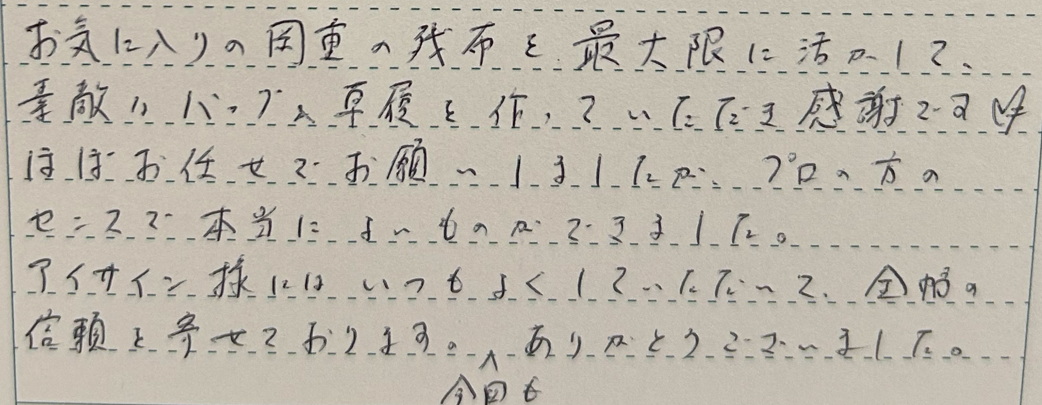 お気に入りの国重の残布を最大限に活かして、
素敵なバッグと草履を作っていただき感謝です
ほぼお任せでお願いしましたが、プロの方の
センスで本当によいものができました。
アイサイン様にはいつもよくしていただいて、全幅の
信頼を寄せております。ありがとうございました。
今回も